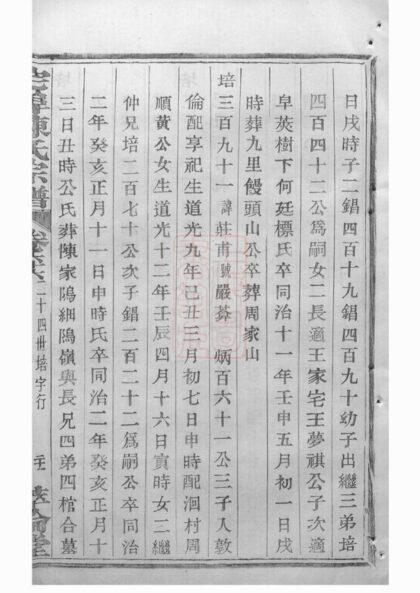 日戌時子二錩四百十九錩四百九十幼子出繼三弟培
四百四十二公爲嗣女二長適王家宅王夢祺公子次適
皁莢樹下何廷標氏卒同治十一年壬申五月初一日戌
時葬九里饅頭山公卒葬周家山
培三百九十一諱莊甫號嚴莽炳百六十一公三子人敦
倫配享祀生道光九年己丑三月初七日申時配洄村周
順黃公女生道光十二年壬辰四月十六日寅時女三繼
仲兄培二百七十公次子錩二百二十二爲嗣公卒同治
二年癸亥正月十一日申時氏卒同治二年癸亥正月十
三日丑時公氏葬陳家隝綑隝嶺與長兄四弟四棺合墓
陳氏宗譜
二十四世培字行